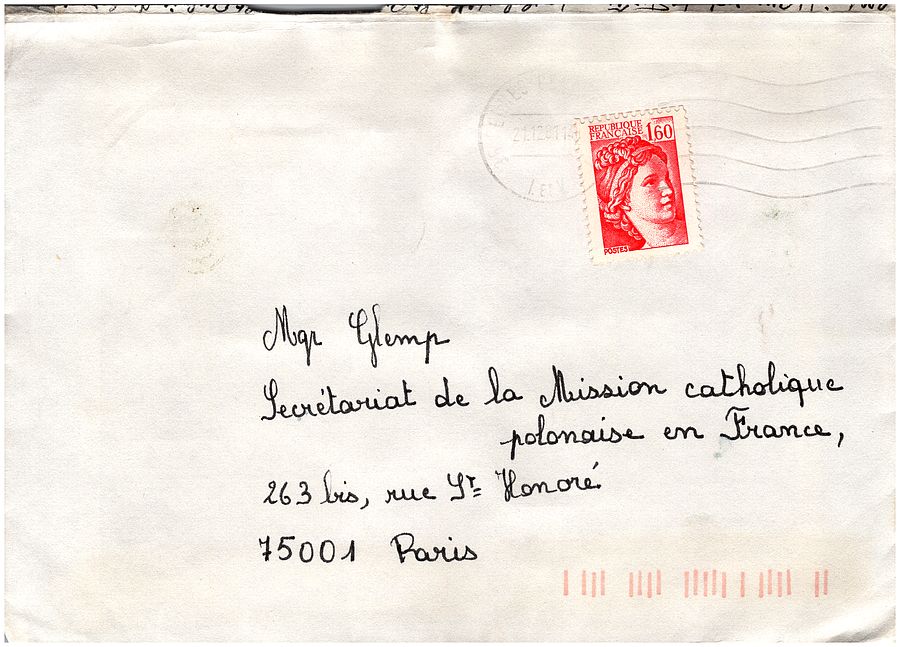 RÉPUBLIQUE
FRANÇAISE 1,60
POSTES
Mgr Glemp
Secrétariat de la Mission catholique
polonaise en France,
263 bis, rue St= Honoré
75001 Paris